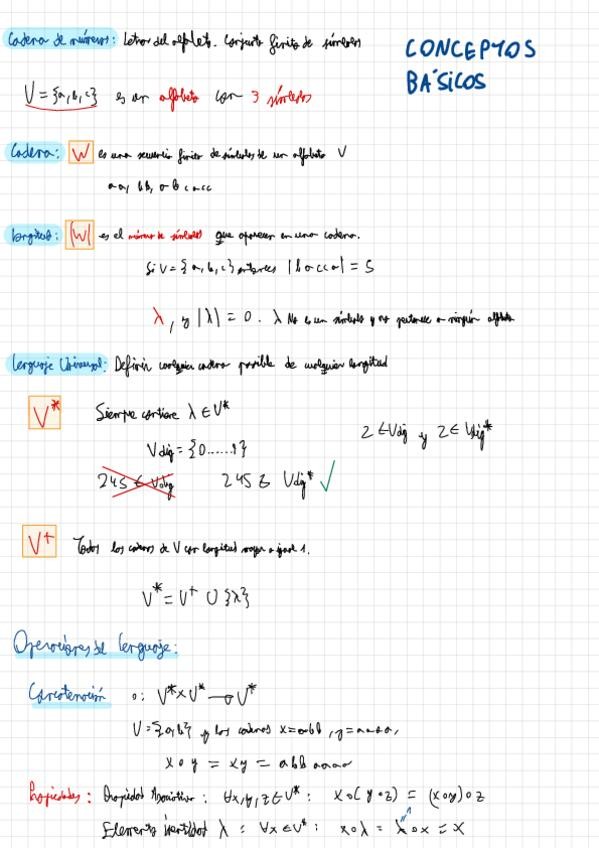 CONCEPTOS
BÁSICOS
Cadena de números: Letras del alfabeto. Conjunto finito de símbolos
V = {a, b, c} es un alfabeto con 3 símbolos
Cadena: W es una secuencia finita de símbolos de un alfabeto V
aa, bb,
longitud: |W| es el número de símbolos que aparecen en una cadena.
Si V = {a, b, c} entonces |bacca| = 5
λ, y |λ| = 0. λ No es un símbolo y no pertenece a ningún alfabeto
Lenguaje Universal: Definir cualquier cadena posible de cualquier longitud
V* Siempre contiene λ ∈ V*
Vdig = {0......9}
2 ∈ Vdig y 2 ∈ Vdig*
245 ∈ Vdig 245 ∈ Vdig* ✓
V+ Todas las cadenas de V con longitud mayor o igual 1.
V* = V+ ∪ {λ}
Operaciones de lenguaje:
Concatenación o: V* x V* → V*
V = {a, b} y las cadenas x = abb, y = aaaa,
x o y = xy = abb aaaa
Propiedades: Propiedad Asociativa: ∀x, y, z ∈ V*: x o (y o z) = (x o y) o z
Elemento identidad λ: ∀x ∈ V*: x o λ = λ o x = x